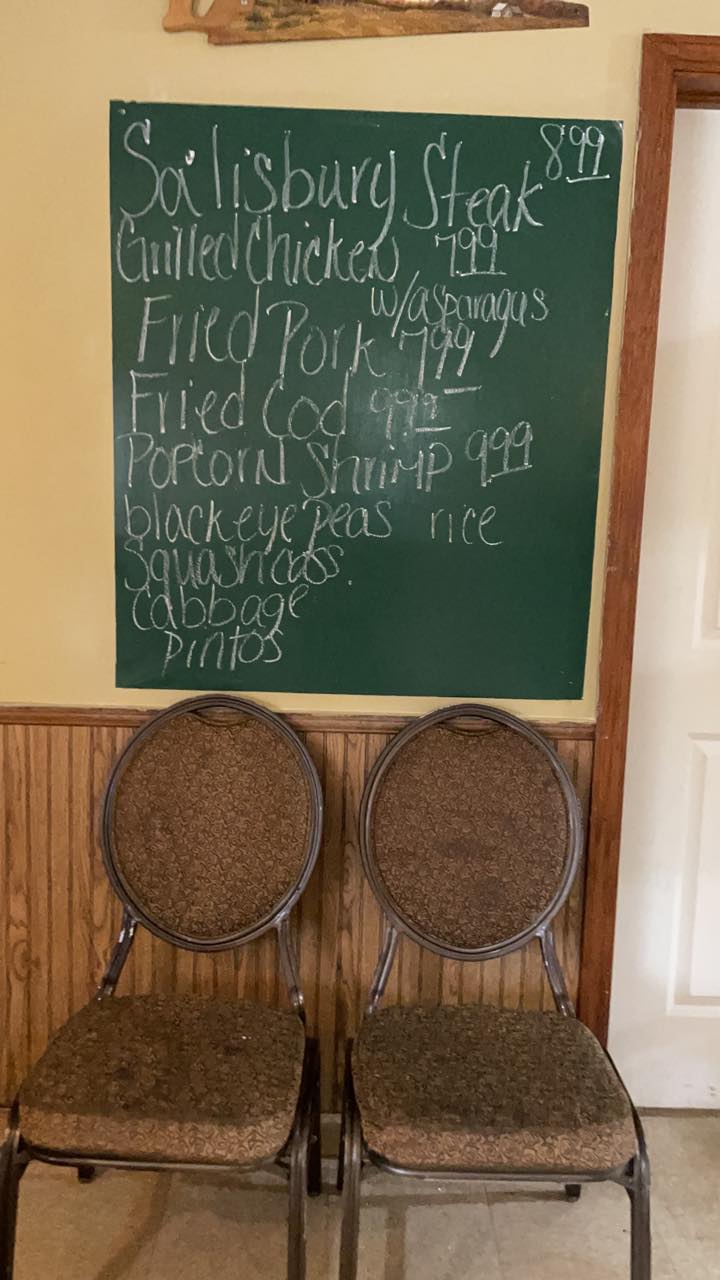 Salisbury Steak 8 99
Grilled Chicken 7 99
w/asparagus
Fried Pork 7 99
Fried Cod 9 99
Popcorn Shrimp 9 99
blackeye peas rice
Squash cass.
Cabbage
pintos